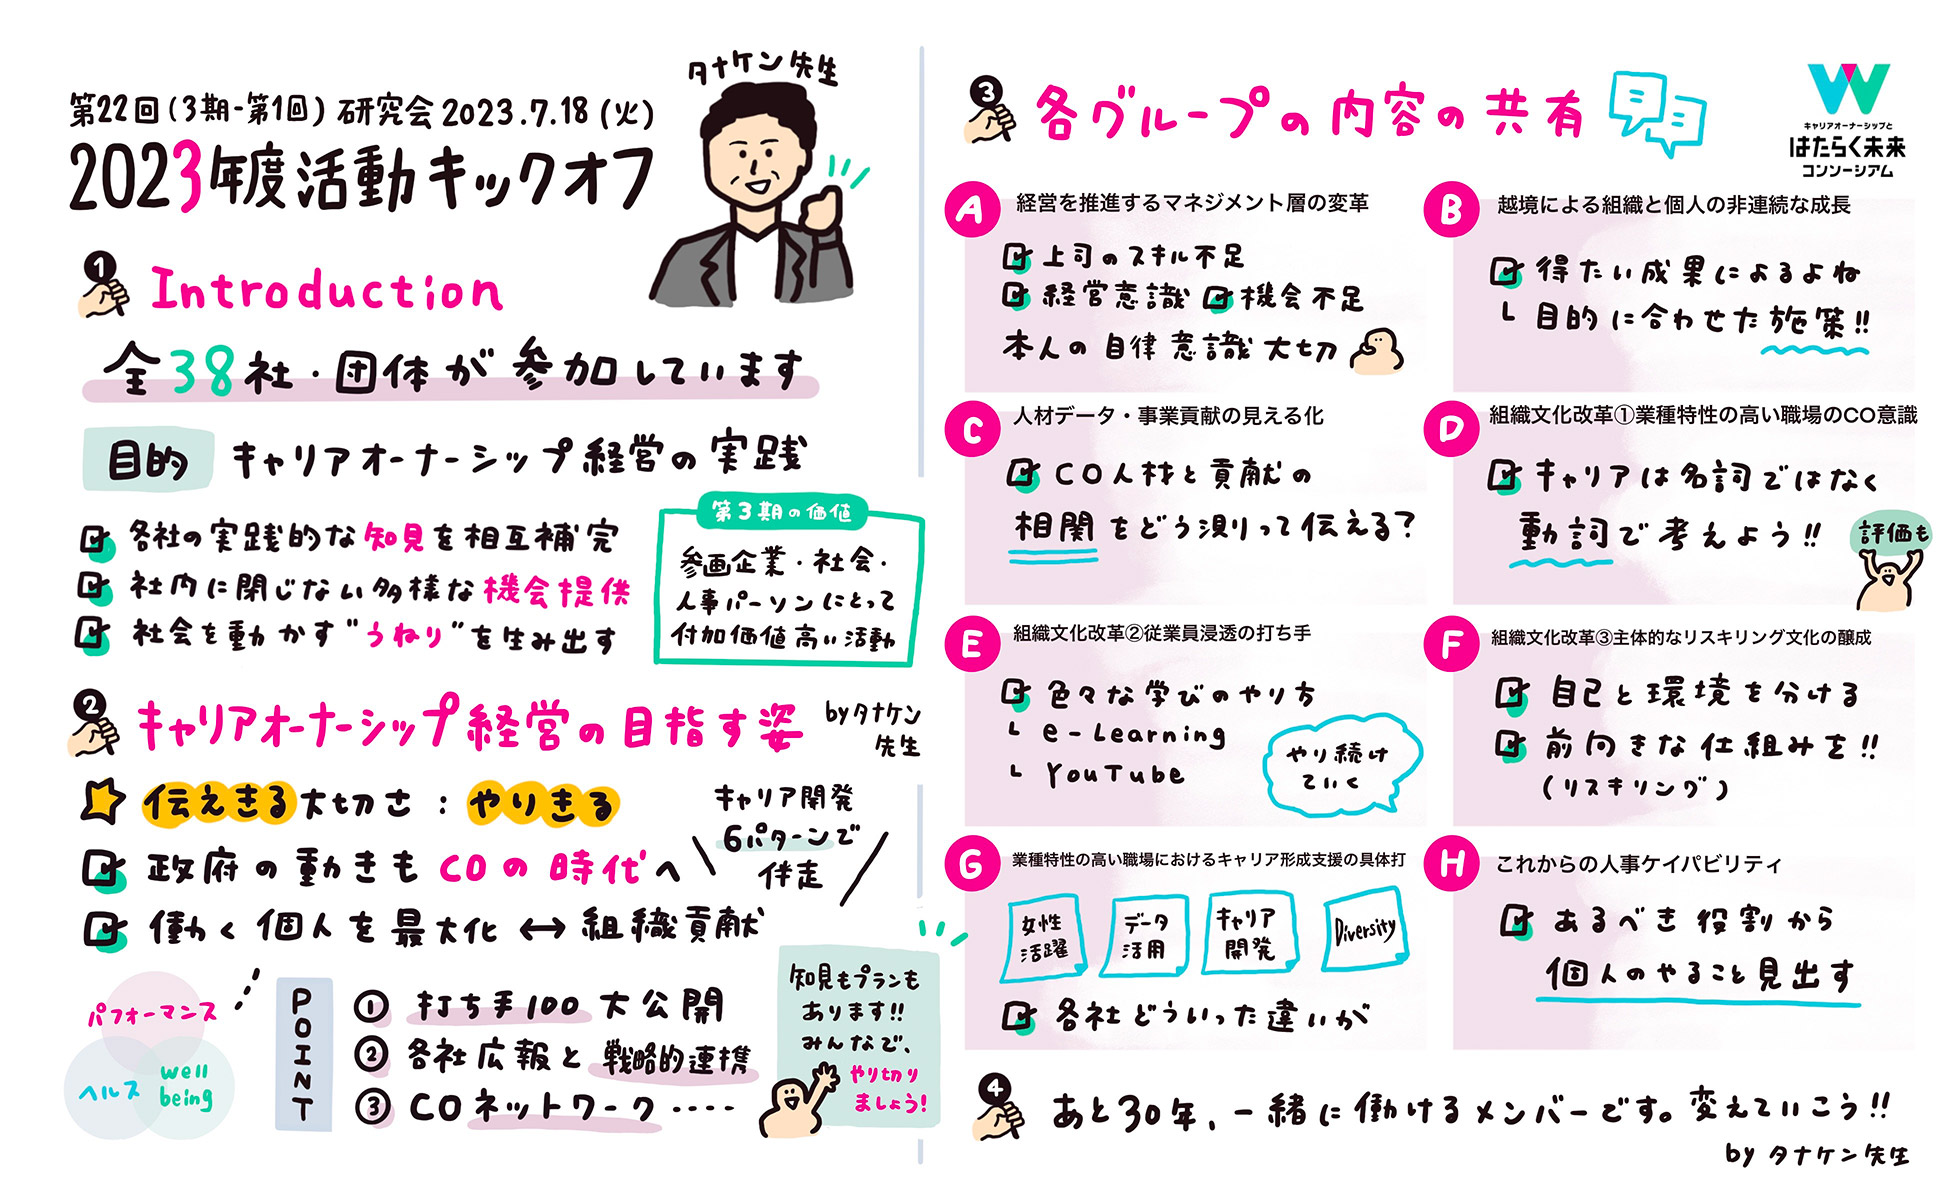 第22回(3期-第1回)研究会2023.7.18(火)
2023年度活動キックオフ
タナケン先生
1
Introduction
全38社・団体が参加しています
目的 キャリアオーナーシップ経営の実践
各社の実践的な知見を相互補完
社内に閉じない多様な機会提供
社会を動かす"うねり"を生み出す
第3期の価値
参画企業・社会・
人事パーソンにとって
付加価値高い活動
2
キャリアオーナーシップ経営の目指す姿
byタナケン
先生
伝えきる大切さ:やりきる
政府の動きもCOの時代へ
働く個人を最大化↔組織貢献
キャリア開発
6パターンで
伴走
パフォーマンス
ヘルス
well
being
POINT
① 打ち手100 大公開
② 各社広報と戦略的連携
③ COネットワーク‥‥
知見もプランも
あります!!
みんなで、
やり切り
ましょう!
3
各グループの内容の共有
キャリアオーナーシップと
はたらく未来
コンソーシアム
A
経営を推進するマネジメント層の変革
上司のスキル不足
経営意識 機会不足
本人の自律意識大切
B
越境による組織と個人の非連続な成長
得たい成果によるよね
└ 目的に合わせた施策!!
C
人材データ・事業貢献の見える化
CO人材と貢献の
相関をどう測りって伝える?
D
組織文化改革①業種特性の高い職場のCO意識
キャリアは名詞ではなく
動詞で考えよう!!
評価も
E
組織文化改革②従業員浸透の打ち手
色々な学びのやり方
└ e-Learning
└ YouTube
やり続け
ていく
F
組織文化改革③主体的なリスキリング文化の醸成
自己と環境を分ける
前向きな仕組みを!!
(リスキリング)
G
業種特性の高い職場におけるキャリア形成支援の具体打
女性
活躍
データ
活用
キャリア
開発
Diversity
各社どういった違いが
H
これからの人事ケイパビリティ
あるべき役割から
個人のやること見出す
4
あと30年、一緒に働けるメンバーです。変えていこう!!
by タナケン先生